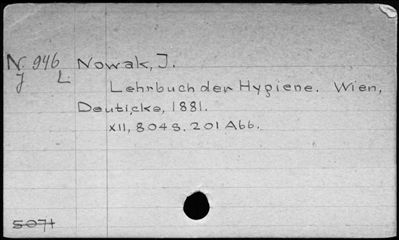 N 946 Nowak, J.
J L Lehrbuch der Hygiene. Wien,
Deuticke, 1881.
XII, 804 S. 201 Abb.
5071